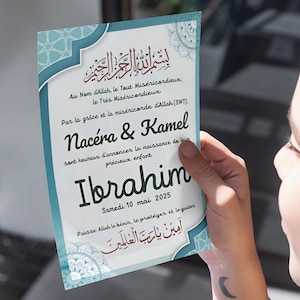 بسم الله الرحمن الرحيم
Au Nom d'Allah, le Tout Miséricordieux,
le Très Miséricordieux
Par la grâce et la miséricorde d'Allah (SWT),
Nacéra & Kamel
sont heureux d'annoncer la naissance de le
précieux enfant
Ibrahim
Samedi 10 mai 2025
Puisse Allah le bénir, le protéger et le guider
آمين يارب العالمين